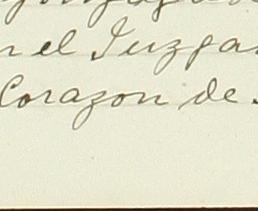 n el Juzga
Corazon de